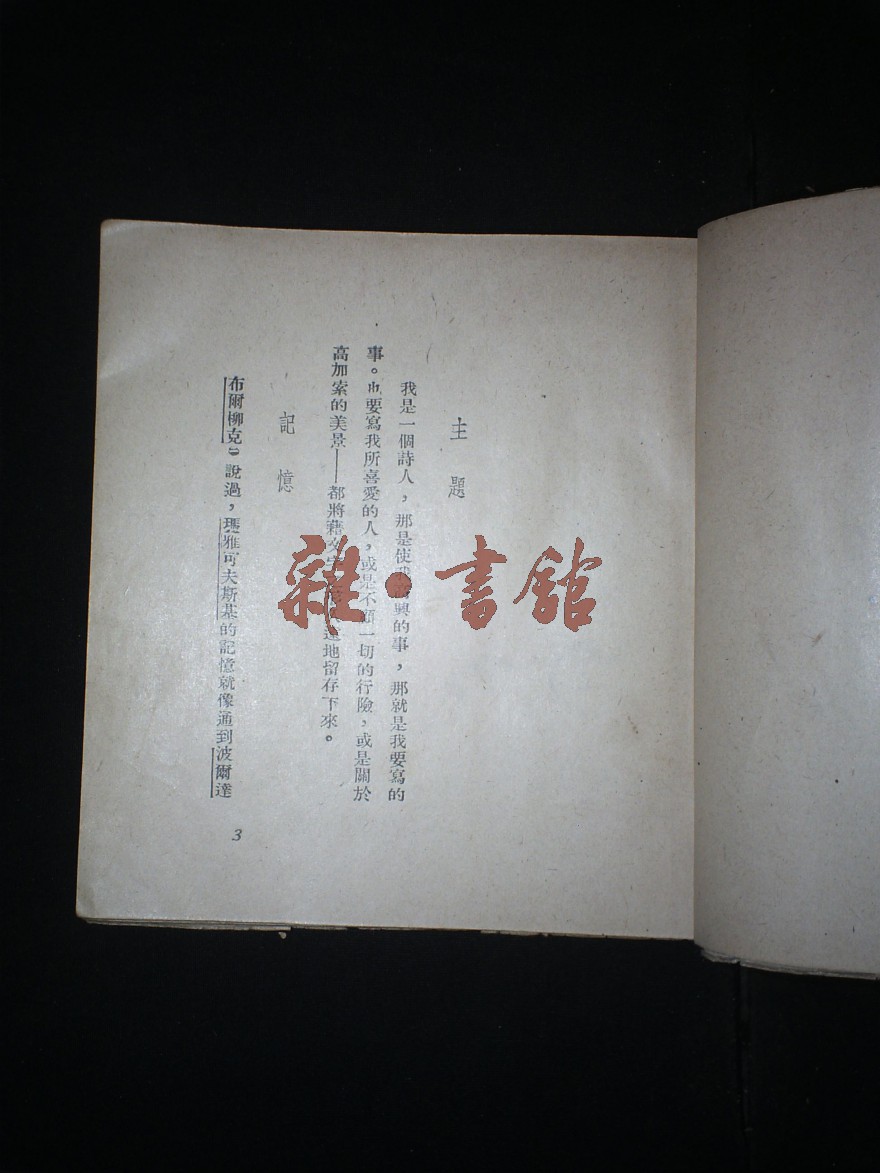 主題
我是一個詩人，那是使我高興的事，那就是我要寫的
事。也要寫我所喜愛的人，或是不顧一切的行險，或是關於
高加索的美景——都將藉文 地留存下來。
記憶
布爾柳克㊀說過，瑪雅可夫斯基的記憶就像通到波爾達
3
雜·書館